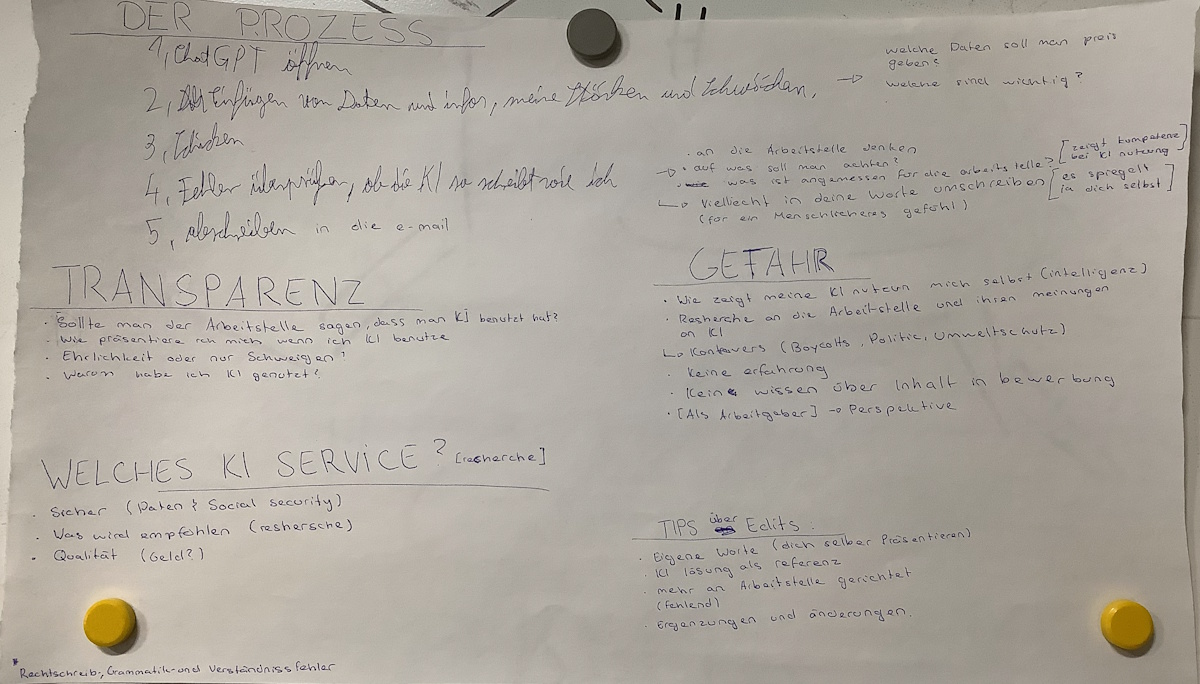 DER PROZESS
1, ChatGPT öffnen
2, Einfügen von Daten und infos, meine Stärken und Schwächen,
→ welche Daten soll man preis
geben?
welche sind wichtig?
3, Schicken
4, Fehler überprüfen, ob die KI so schreibt wie ich
· an die Arbeitstelle denken
→ · auf was soll man achten?
· was ist angemessen für die arbeitstelle? [zeigt kompetenz
bei KI nutzung]
↳ Viellecht in deine Worte umschreiben [es spiegelt
ja dich selbst]
(für ein Menschlicheres gefühl)
5, abschreiben in die e-mail
TRANSPARENZ
· Sollte man der Arbeitstelle sagen, dass man KI benutzt hat?
· Wie präsentiere ich mich wenn ich KI benutze
· Ehrlichkeit oder nur Schweigen?
· Warum habe ich KI genutzt?
GEFAHR
· Wie zeigt meine KI nutzun mich selbst (intelligenz)
· Resherche an die Arbeitstelle und ihren meinungen
an KI
↳ Kontavers (Boycotts, Politic, Umweltschutz)
· Keine erfahrung
· Kein wissen über Inhalt in bewerbung
· [Als Arbeitgeber] → Perspektive
WELCHES KI SERVICE? [resherche]
· Sicher (Daten & Social security)
· Was wird empfohlen (reshersche)
· Qualität (Geld?)
TIPS über Edits.
· Eigene Worte (dich selber Präsentieren)
· KI lösung als referenz
· mehr an Arbeitstelle gerichtet
(fehlend)
· Ergenzungen und änderungen.
* Rechtschreib-, Grammatik- und Verständnissfehler